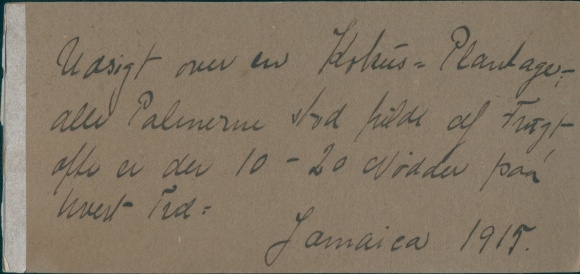 Udsigt over en Kokus= Plantage;
alle Palmerne stod fulde af Frugt
ofte er der 10 - 20 Nødder paa
hvert Træ=
Jamaica 1915.